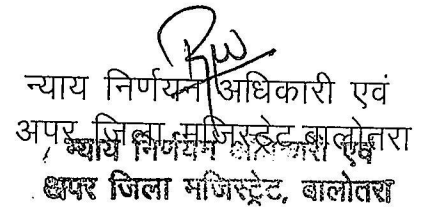 न्याय निर्णयन अधिकारी एवं
अपर जिला मजिस्ट्रेट बालोतरा
न्याय निर्णयन अधिकारी एवं
अपर जिला मजिस्ट्रेट, बालोतरा